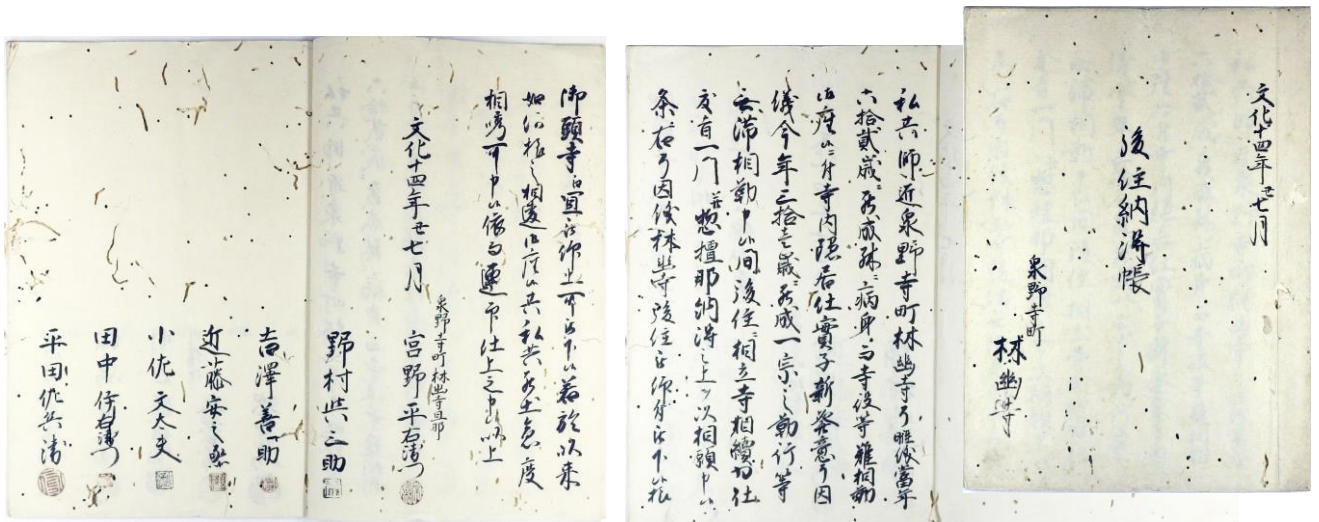 文化十四年丑七月
後住納得帳
泉野寺町
林幽寺
私共師近泉野寺町林幽寺了
六拾貳歳ニ罷成殊ニ病身ニ而寺役等難相勤
御座候ニ付寺内隠居仕實子新發意了因
儀今年三拾壱歳ニ罷成一宗之勤行等
無滞相勤申候間後住ニ相立寺相續為仕
度旨一門并惣檀那納得之上を以相願申候
条右了因儀林幽寺後住被仰付被下候様
御頭寺江宜被仰上可被下候若於以来
如何様之相違御座候共私共罷出急度
相嗜可申候依而連印仕上之申候以上
文化十四年丑七月
泉野寺町林幽寺旦那
宮野平右衛門
野村與三助
吉澤善助
近藤安之丞
小佐文太夫
田中伊右衛門
平田佐兵衛